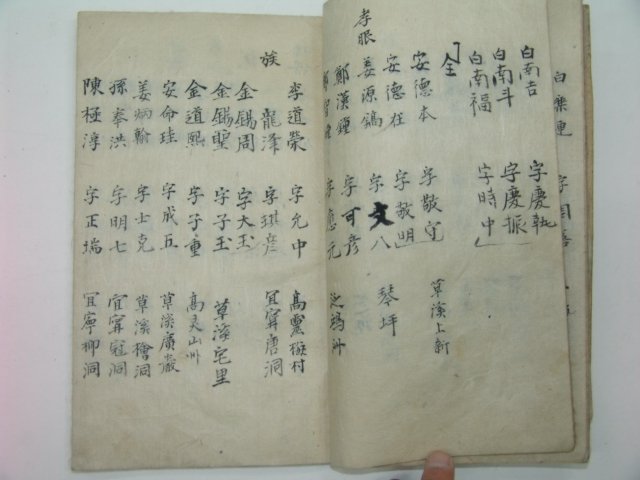 白南吉 字慶執
白南斗 字慶振
白南福 字時中
仝
安德本 字敬守 草溪上新
安德在 字敬明
孝眠
姜源鎬 字文八 琴坪
鄭漢鍾 字可彦
字應元
李道榮 字允中 高靈 村
族
龍澤 字琪彦 宜寧唐洞
金錫周 字大玉
金錫聖 字子玉 草溪宅里
金道熙 字子重 高灵山州
安命珪 字成五 草溪廣嚴
姜炳翰 字士克 草溪檜洞
孫奉洪 字明七 宜寧冠洞
陳極淳 字正瑞 宜寧柳洞